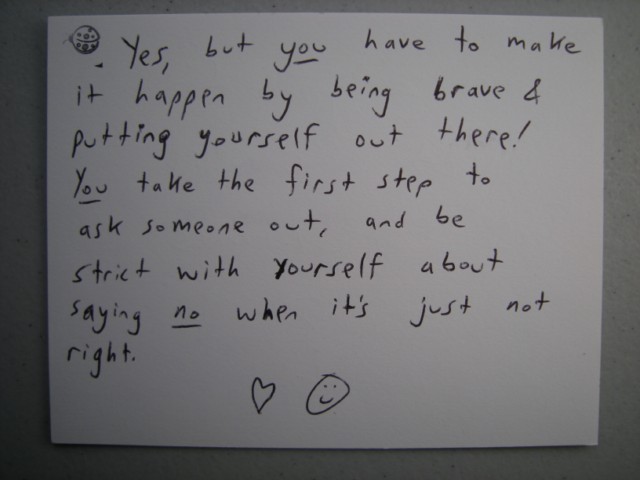 Yes, but you have to make
it happen by being brave &
putting yourself out there!
You take the first step to
ask someone out, and be
strict with yourself about
saying no when it's just not
right.